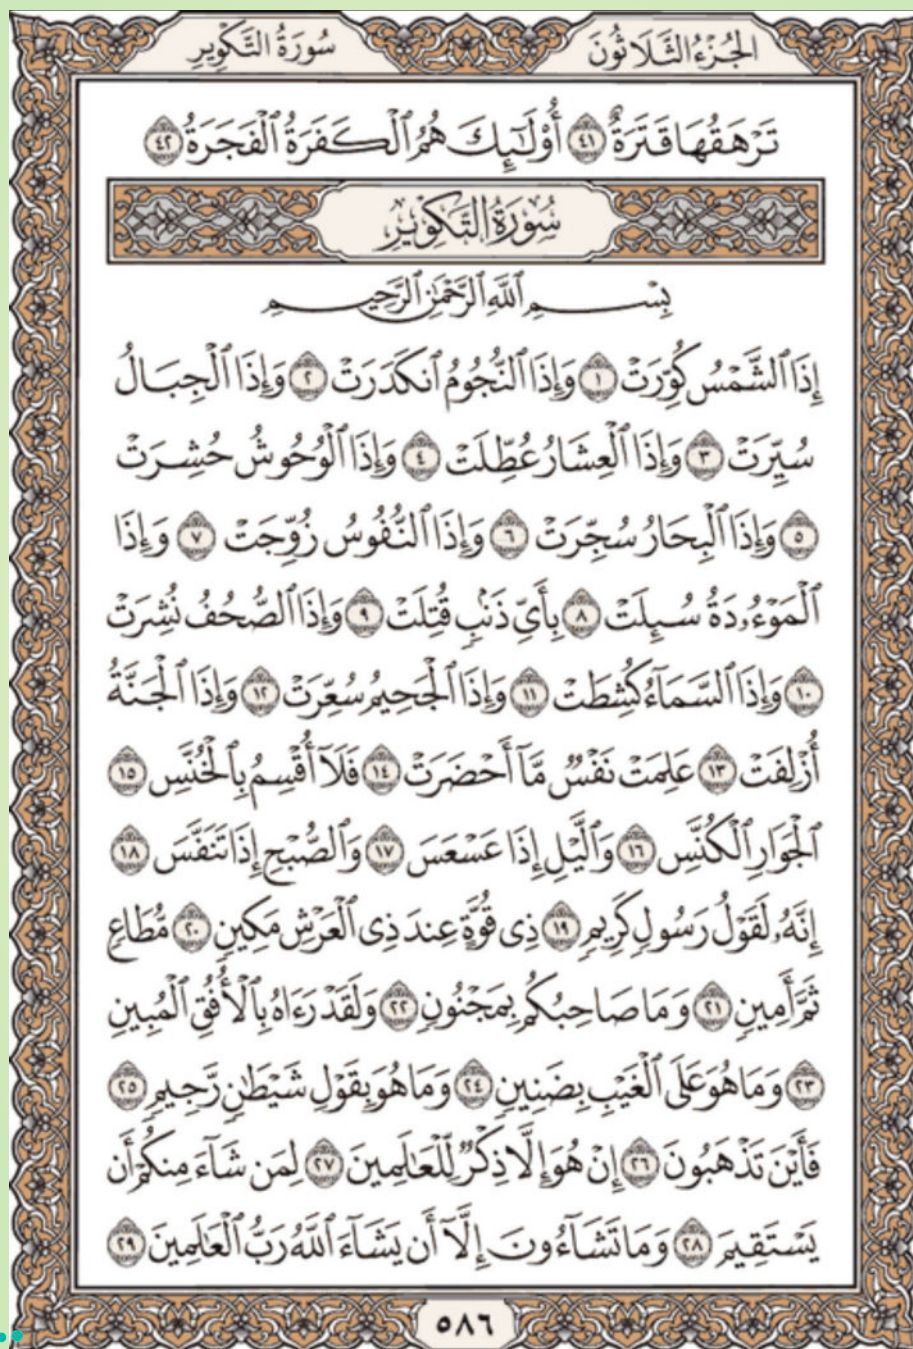 الجُزْءُ الثَّلَاثُونَ
سُورَةُ التَّكْوِيرِ
تَرْهَقُهَا قَتَرَةٌ ٤١ أُوْلَٰٓئِكَ هُمُ ٱلْكَفَرَةُ ٱلْفَجَرَةُ ٤٢
سُورَةُ التَّكْوِيرِ
بِسْمِ ٱللَّهِ ٱلرَّحْمَٰنِ ٱلرَّحِيمِ
إِذَا ٱلشَّمْسُ كُوِّرَتْ ١ وَإِذَا ٱلنُّجُومُ ٱنكَدَرَتْ ٢ وَإِذَا ٱلْجِبَالُ
سُيِّرَتْ ٣ وَإِذَا ٱلْعِشَارُ عُطِّلَتْ ٤ وَإِذَا ٱلْوُحُوشُ حُشِرَتْ
٥ وَإِذَا ٱلْبِحَارُ سُجِّرَتْ ٦ وَإِذَا ٱلنُّفُوسُ زُوِّجَتْ ٧ وَإِذَا
ٱلْمَوْءُۥدَةُ سُئِلَتْ ٨ بِأَىِّ ذَنۢبٍ قُتِلَتْ ٩ وَإِذَا ٱلصُّحُفُ نُشِرَتْ
١٠ وَإِذَا ٱلسَّمَآءُ كُشِطَتْ ١١ وَإِذَا ٱلْجَحِيمُ سُعِّرَتْ ١٢ وَإِذَا ٱلْجَنَّةُ
أُزْلِفَتْ ١٣ عَلِمَتْ نَفْسٌ مَّآ أَحْضَرَتْ ١٤ فَلَآ أُقْسِمُ بِٱلْخُنَّسِ ١٥
ٱلْجَوَارِ ٱلْكُنَّسِ ١٦ وَٱلَّيْلِ إِذَا عَسْعَسَ ١٧ وَٱلصُّبْحِ إِذَا تَنَفَّسَ ١٨
إِنَّهُۥ لَقَوْلُ رَسُولٍ كَرِيمٍ ١٩ ذِى قُوَّةٍ عِندَ ذِى ٱلْعَرْشِ مَكِينٍ ٢٠ مُّطَاعٍ
ثَمَّ أَمِينٍ ٢١ وَمَا صَاحِبُكُم بِمَجْنُونٍ ٢٢ وَلَقَدْ رَءَاهُ بِٱلْأُفُقِ ٱلْمُبِينِ
٢٣ وَمَا هُوَ عَلَى ٱلْغَيْبِ بِضَنِينٍ ٢٤ وَمَا هُوَ بِقَوْلِ شَيْطَٰنٍ رَّجِيمٍ ٢٥
فَأَيْنَ تَذْهَبُونَ ٢٦ إِنْ هُوَ إِلَّا ذِكْرٌ لِّلْعَٰلَمِينَ ٢٧ لِمَن شَآءَ مِنكُمْ أَن
يَسْتَقِيمَ ٢٨ وَمَا تَشَآءُونَ إِلَّآ أَن يَشَآءَ ٱللَّهُ رَبُّ ٱلْعَٰلَمِينَ ٢٩
٥٨٦